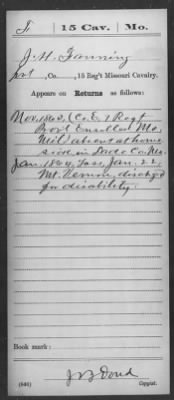 F | 15 Cav. | Mo.
J. H. Fanning
Pvt, Co. , 15 Reg't Missouri Cavalry.
Appears on Returns as follows:
Nov. 1863, (Co. E, 7 Regt
Prov't Enrolled Mo.
Mil) absent at home
sick in Dade Co. Mo.
Jan. 1864, Loss, Jan. 22,
Mt. Vernon, dischgd
for disability.
Book mark:
(546)
J B Doud
Copyist.